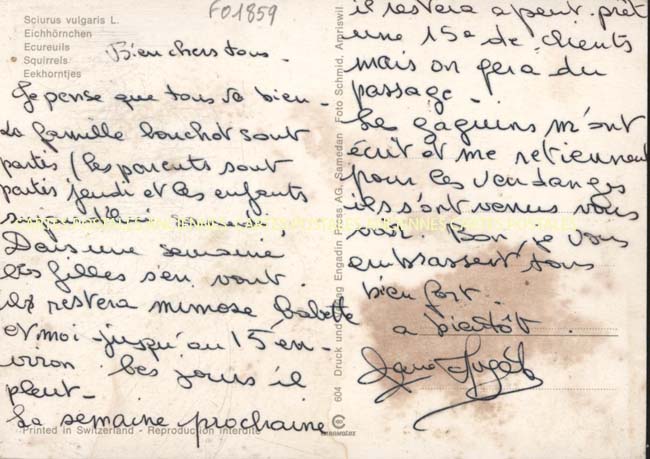 F01859
Sciurus vulgaris L.
Eichhörnchen
Ecureuils
Squirrels
Eekhorntjes
Bien chers tous.
Je pense que tous va bien -
La famille bouchot sont
partis (les parents sont
partis jeudi et les enfants
Dans une semaine
les filles s'en vont.
restera mimose babette
et moi jusqu'au 15 en-
viron Ces jours il
pleut-
La semaine prochaine
Printed in Switzerland - Reproduction interdite
604 Druck und Verlag Engadin Press AG, Samedan Foto Schmid, Amriswil
il restera a peut prêt
une 15e de clients
mais on fera du
passage.
Les gaguins m'ont
écrit et me retiennent
pour les vendanges
ils sont venus vous
voir. Bon je vous
embrassent tous
bien fort.
a bientôt.